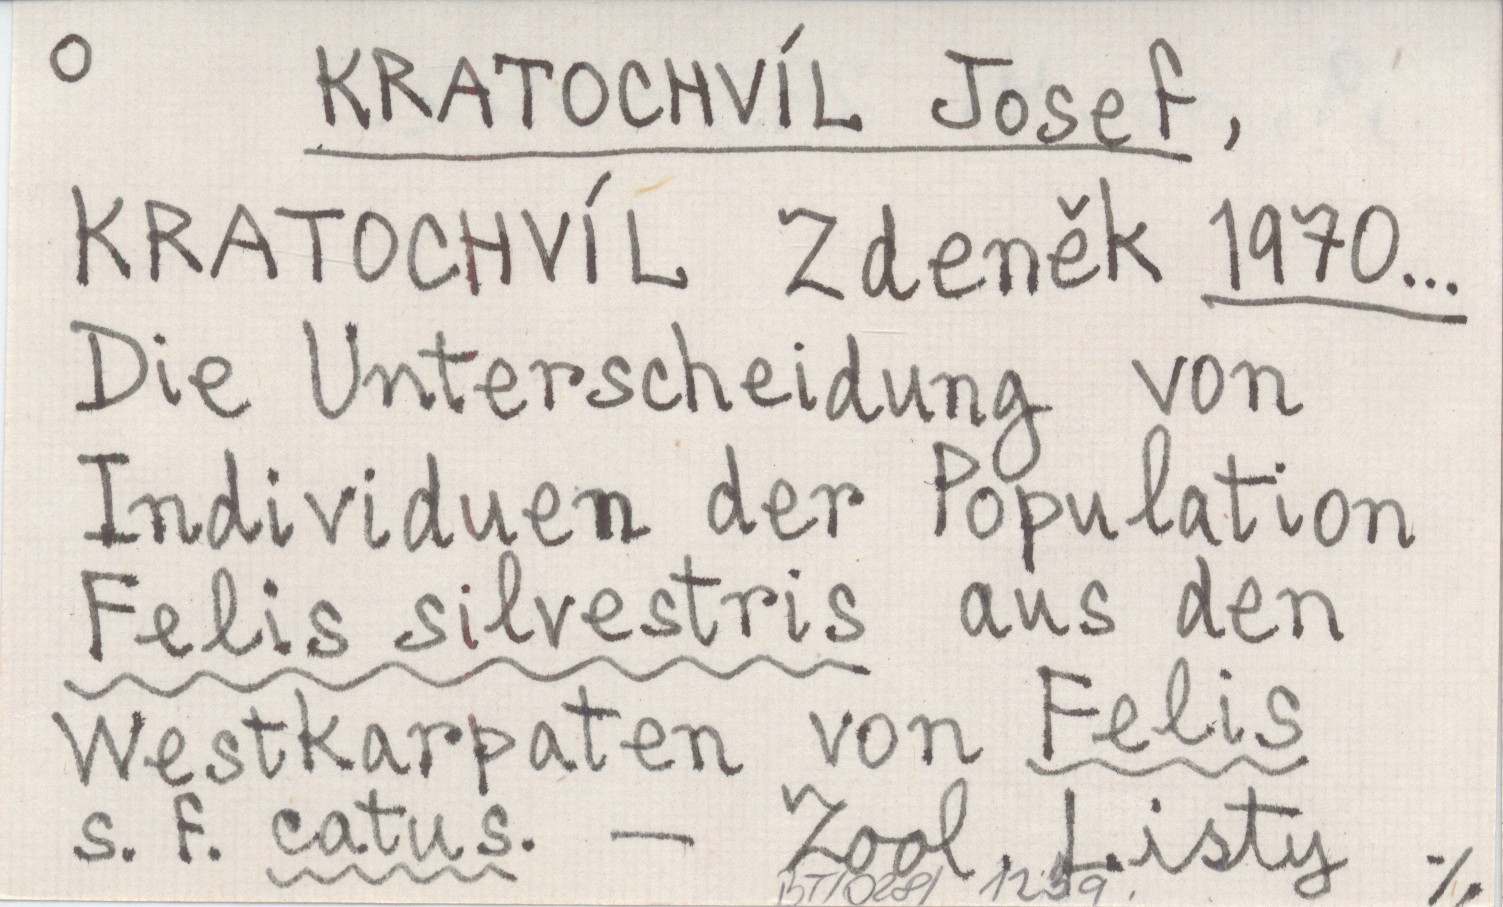 O KRATOCHVÍL Josef,
KRATOCHVÍL Zdeněk 1970...
Die Unterscheidung von
Individuen der Population
Felis silvestris aus den
Westkarpaten von Felis
s. f. catus. — Zool. Listy ./.